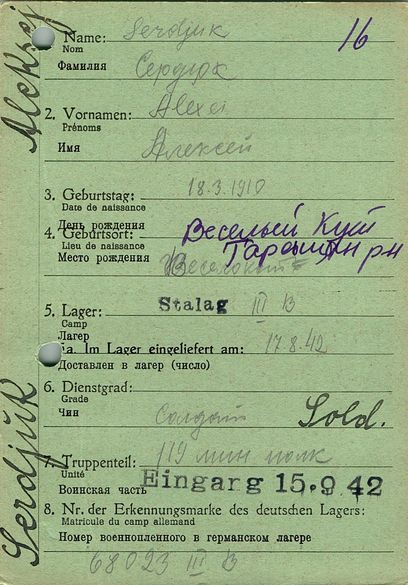 Aleksej
Serdjuk
16
1. Name: Serdjuk
Nom
Фамилия Сердюк
2. Vornamen: Alexei
Prénoms
Имя Алексей
3. Geburtstag: 18.3.1910
Date de naissance
День рождения
4. Geburtsort: Веселый Кут
Lieu de naissance
Место рождения рн
5. Lager: Stalag III B
Camp
Лагер
5a. Im Lager eingeliefert am: 17.8.42
Доставлен в лагер (число)
6. Dienstgrad:
Grade
Чин Солдат Sold.
7. Truppenteil: 119 мин полк
Unité
Воинская часть Eingang 15.9.42
8. Nr. der Erkennungsmarke des deutschen Lagers:
Matricule du camp allemand
Номер военнопленного в германском лагере
68023 III B